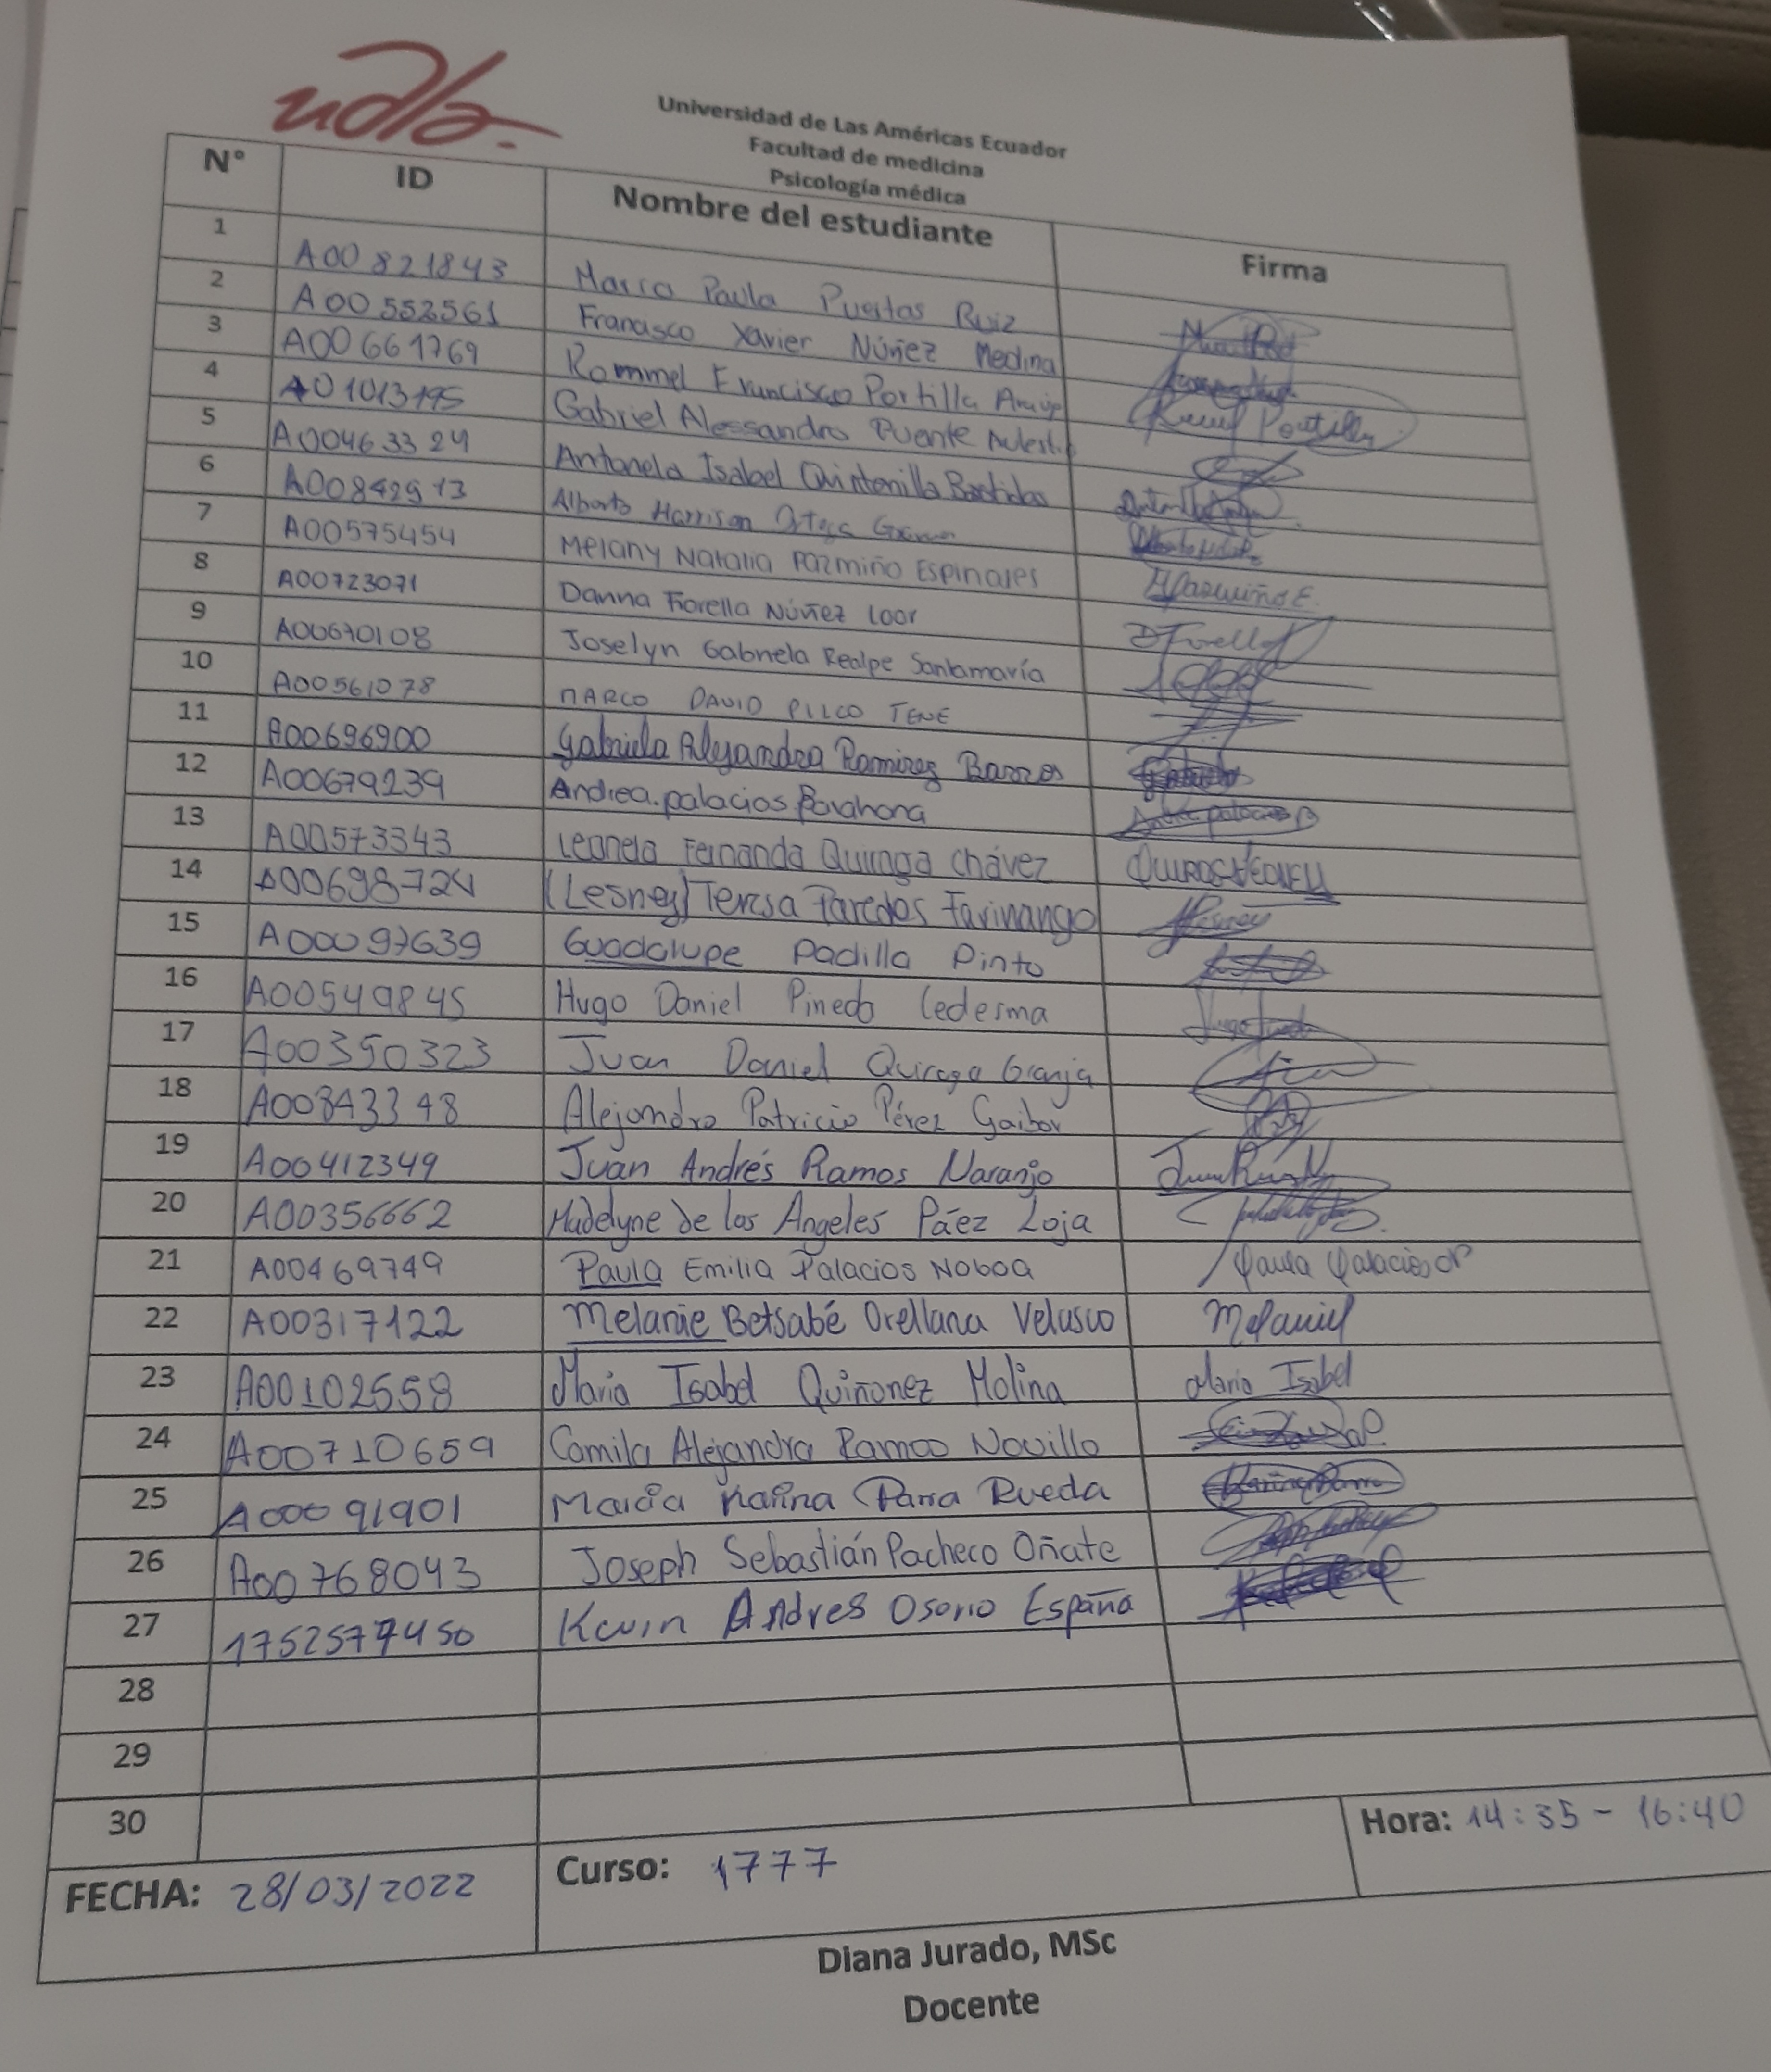 udla-
Universidad de Las Américas Ecuador
Facultad de medicina
Psicología médica
N° ID Nombre del estudiante Firma
1 A00821843 Paula Puertas Ruiz
2 A00552561 Francisco Xavier Núñez Medina
3 A00661769 Rommel Francisco Portilla
4 A01013195 Gabriel Alessandro Puente
5 A00463324 Antonela Isabel Quintanilla Bastidas
6 A00842913 Alberto Harrison Ortega
7 A00575454 Melany Natalia Pazmiño Espinales MPazmiño E.
8 A00723071 Danna Fiorella Núñez loor DFiorella
9 A00670108 Joselyn Gabriela Realpe Santamaría
10 A00561078 MARCO DAVID PILCO TENE
11 A00696900 Gabriela Alejandra Ramirez Barros
12 A00679239 Andrea. palacios Barahona
13 A00573343 Leonela Fernanda Quiroga Chávez
14 A00698724 (Lesney) Teresa Paredes Farinango
15 A00097639 Guadalupe Padilla Pinto
16 A00549845 Hugo Daniel Pineda Ledesma
17 A00350323 Juan Daniel Quiroga Granja
18 A00843348 Alejandro Patricio Pérez Gaibor
19 A00412349 Juan Andrés Ramos Naranjo
20 A00356662 Madelyne de los Angeles Páez Loja
21 A00469749 Paula Emilia Palacios Noboa Paula Palacios
22 A00317122 Melanie Betsabé Orellana Velasco Melanie
23 A00102558 Maria Isabel Quiñonez Molina Maria Isabel
24 A00710659 Camila Alejandra Ramos Novillo
25 A00091901 María Karina Parra Rueda
26 A00768043 Joseph Sebastián Pacheco Oñate
27 1752577450 Kevin Andres Osorio España
28
29
30
FECHA: 28/03/2022 Curso: 1777 Hora: 14:35 - 16:40
Diana Jurado, MSc
Docente